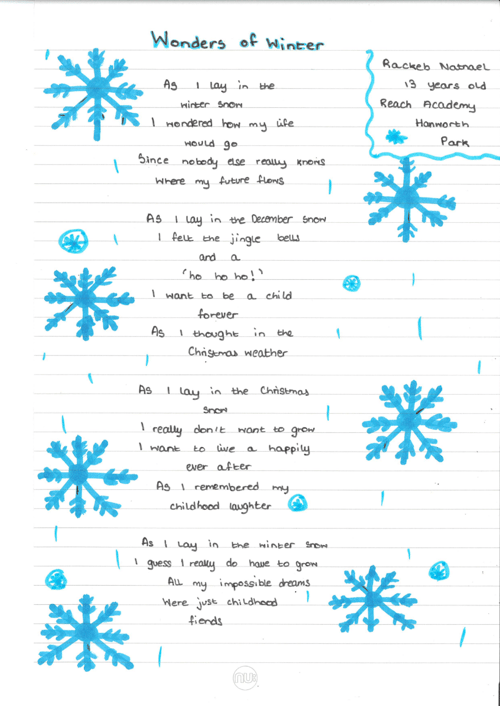 Wonders of Winter
Rackeb Natnael
13 years old
Reach Academy
Hanworth
Park
As I lay in the
winter snow
I wondered how my life
would go
Since nobody else really knows
Where my future flows
As I lay in the December snow
I felt the jingle bells
and a
'ho ho ho!'
I want to be a child
forever
As I thought in the
Christmas weather
As I lay in the Christmas
snow
I really don't want to grow
I want to live a happily
ever after
As I remembered my
childhood laughter
As I lay in the winter snow
I guess I really do have to grow
All my impossible dreams
Were just childhood
fiends
nu